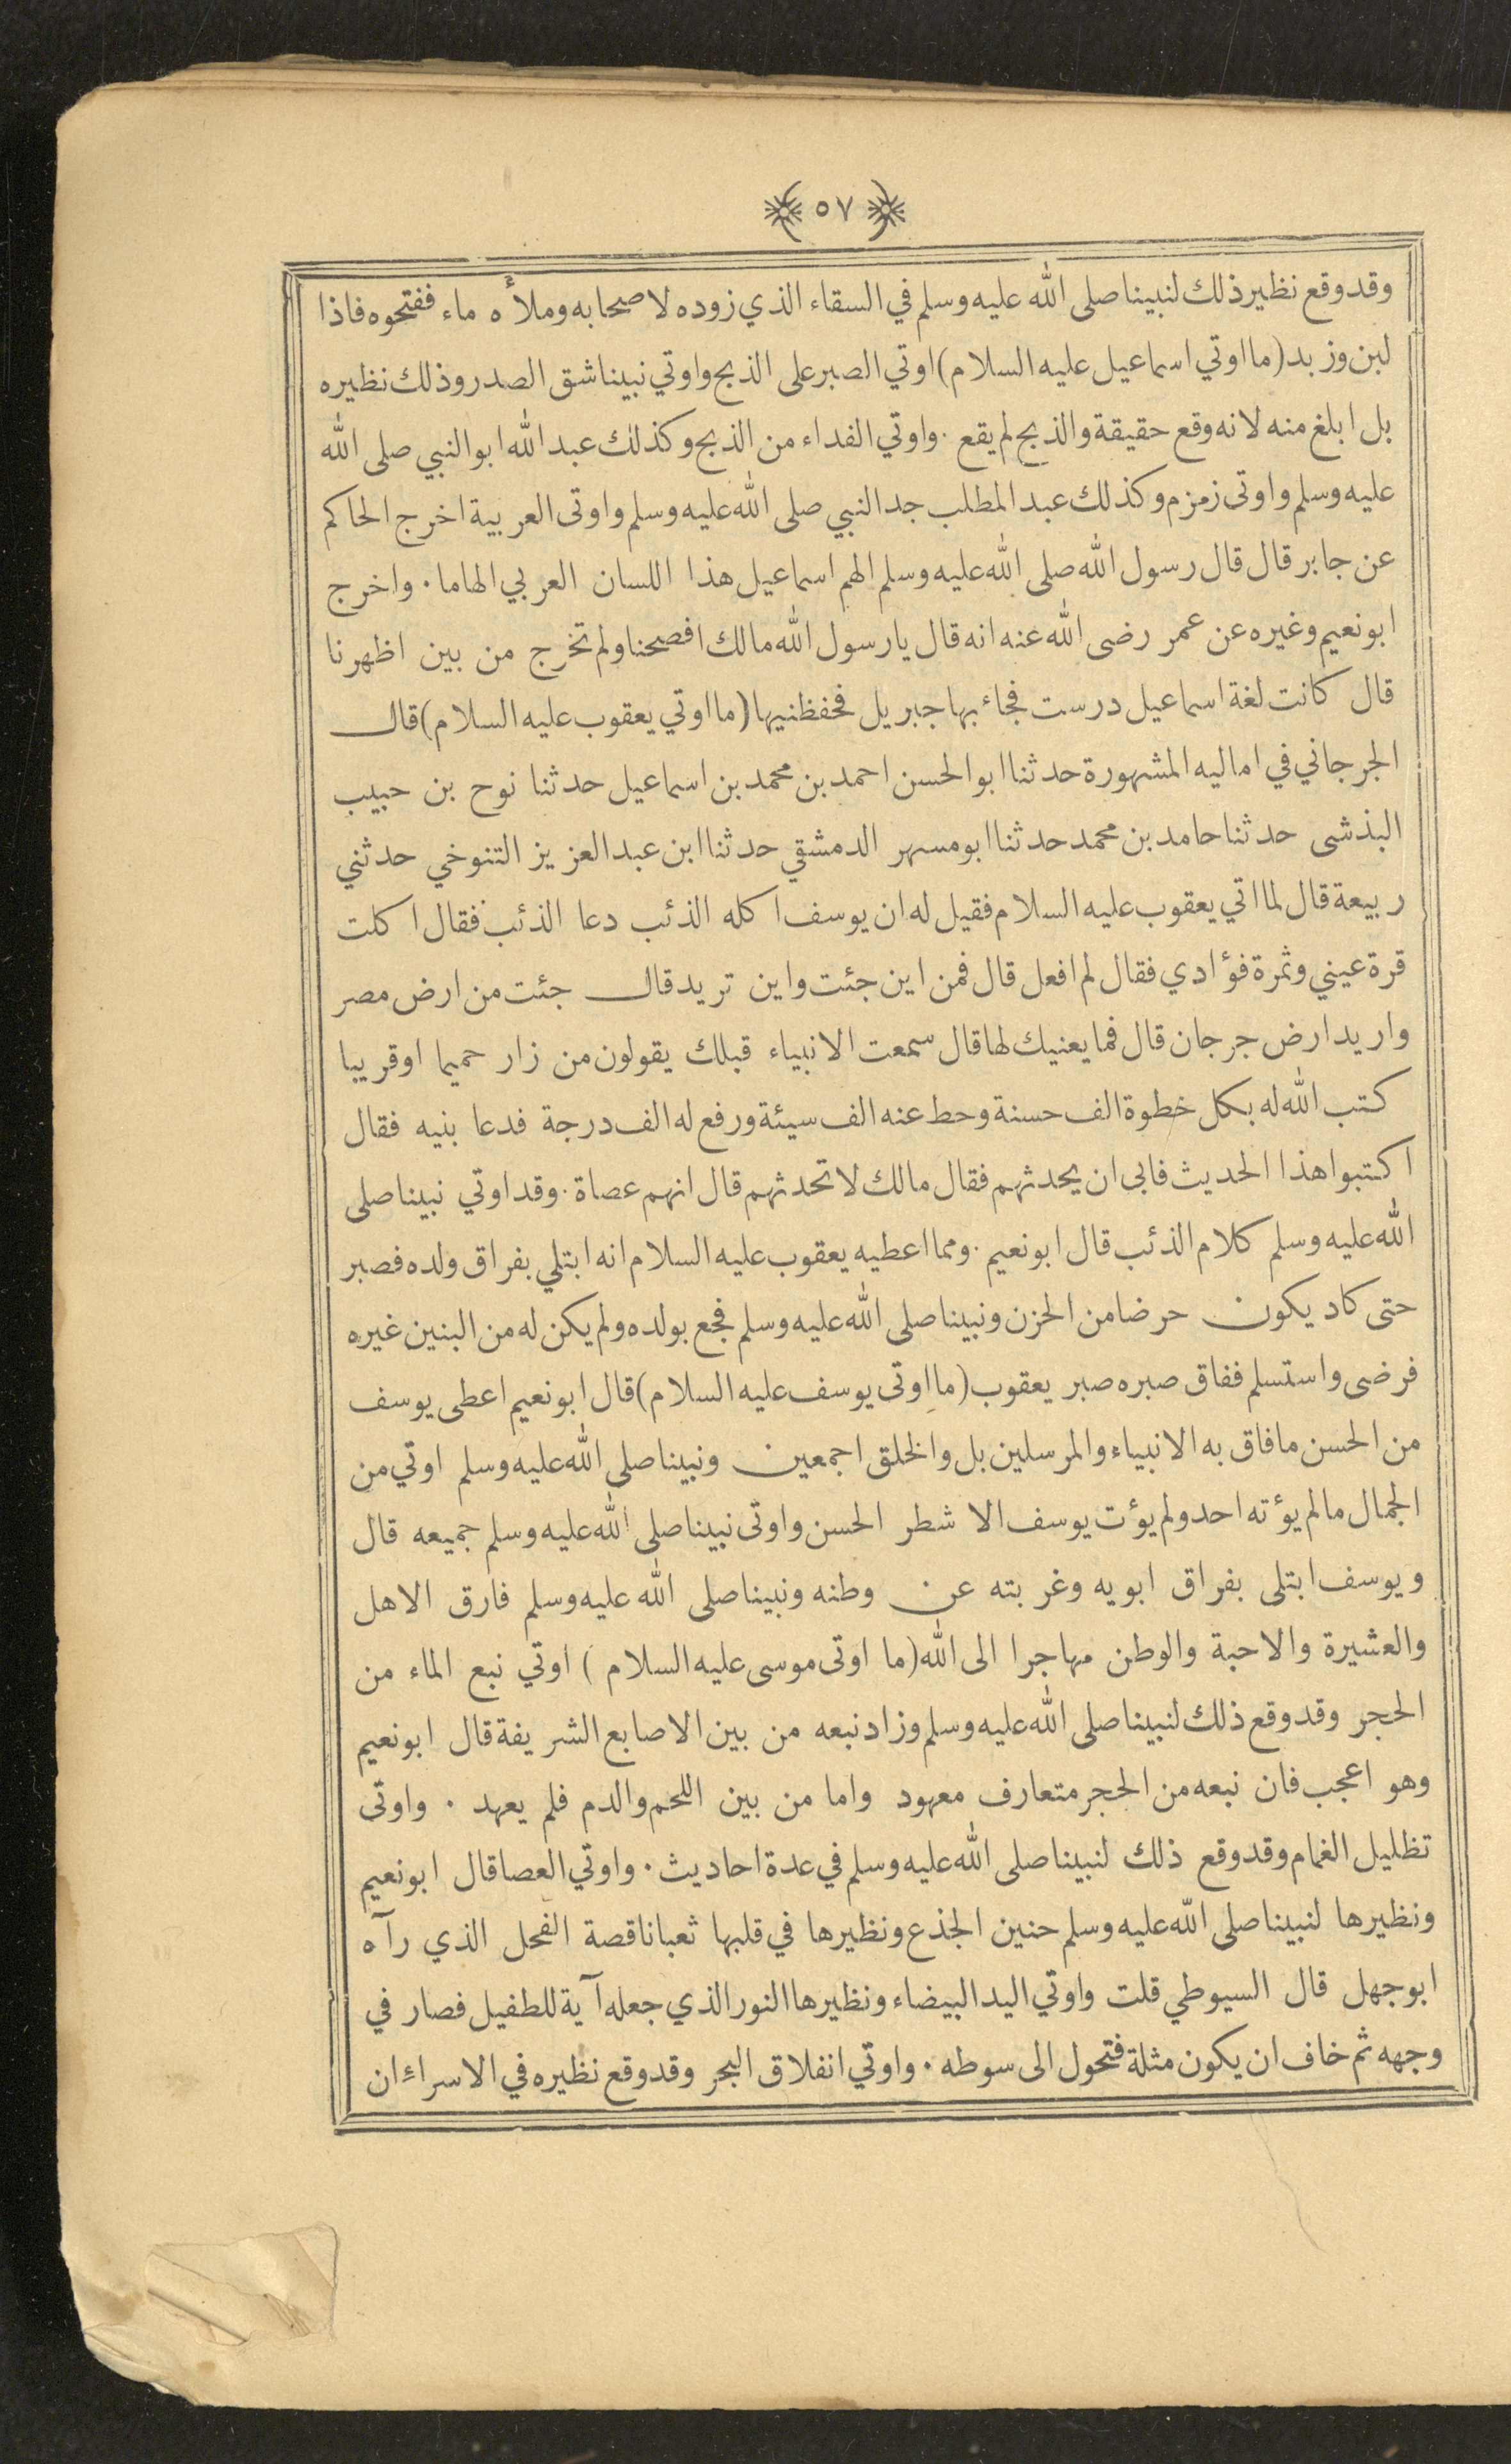 ٥٧
وقد وقع نظير ذلك لنبينا صلى الله عليه وسلم في السقاء الذي زوده لاصحابه وملأه ماء ففتحوه فاذا
لبن وزبد (ما اوتي اسماعيل عليه السلام) اوتي الصبر على الذبح واوتي نبينا شق الصدر وذلك نظيره
بل ابلغ منه لانه وقع حقيقة والذبح لم يقع . واوتي الفداء من الذبح وكذلك عبد الله ابو النبي صلى الله
عليه وسلم واوتى زمزم وكذلك عبد المطلب جد النبي صلى الله عليه وسلم واوتى العربية اخرج الحاكم
عن جابر قال قال رسول الله صلى الله عليه وسلم الهم اسماعيل هذا اللسان العربي الهاما . واخرج
ابو نعيم وغيره عن عمر رضى الله عنه انه قال يا رسول الله مالك افصحنا ولم تخرج من بين اظهرنا
قال كانت لغة اسماعيل درست فجاء بها جبريل فحفظنيها (ما اوتي يعقوب عليه السلام) قال
الجرجاني في اماليه المشهورة حدثنا ابو الحسن احمد بن محمد بن اسماعيل حدثنا نوح بن حبيب
البذشى حدثنا حامد بن محمد حدثنا ابو مسهر الدمشقي حدثنا ابن عبد العزيز التنوخي حدثني
ربيعة قال لما اتي يعقوب عليه السلام فقيل له ان يوسف اكله الذئب دعا الذئب فقال اكلت
قرة عيني وثمرة فؤادي فقال لم افعل قال فمن اين جئت واين تريد قال جئت من ارض مصر
واريد ارض جرجان قال فما يعنيك لها قال سمعت الانبياء قبلك يقولون من زار حميما او قريبا
كتب الله له بكل خطوة الف حسنة وحط عنه الف سيئة ورفع له الف درجة فدعا بنيه فقال
اكتبوا هذا الحديث فابى ان يحدثهم فقال مالك لا تحدثهم قال انهم عصاة . وقد اوتي نبينا صلى
الله عليه وسلم كلام الذئب قال ابو نعيم . ومما اعطيه يعقوب عليه السلام انه ابتلي بفراق ولده فصبر
حتى كاد يكون حرضا من الحزن ونبينا صلى الله عليه وسلم فجع بولده ولم يكن له من البنين غيره
فرضى واستسلم ففاق صبره صبر يعقوب (ما اوتى يوسف عليه السلام) قال ابو نعيم اعطى يوسف
من الحسن ما فاق به الانبياء والمرسلين بل والخلق اجمعين ونبينا صلى الله عليه وسلم اوتي من
الجمال مالم يؤته احد ولم يؤت يوسف الا شطر الحسن واوتى نبينا صلى الله عليه وسلم جميعه قال
ويوسف ابتلى بفراق ابويه وغربته عن وطنه ونبينا صلى الله عليه وسلم فارق الاهل
والعشيرة والاحبة والوطن مهاجرا الى الله (ما اوتى موسى عليه السلام) اوتي نبع الماء من
الحجر وقد وقع ذلك لنبينا صلى الله عليه وسلم وزاد نبعه من بين الاصابع الشريفة قال ابو نعيم
وهو اعجب فان نبعه من الحجر متعارف معهود واما من بين اللحم والدم فلم يعهد . واوتى
تظليل الغمام وقد وقع ذلك لنبينا صلى الله عليه وسلم في عدة احاديث . واوتي العصا قال ابو نعيم
ونظيرها لنبينا صلى الله عليه وسلم حنين الجذع ونظيرها في قلبها ثعبانا قصة الفحل الذي رآه
ابو جهل قال السيوطي قلت واوتي اليد البيضاء ونظيرها النور الذي جعله آية للطفيل فصار في
وجهه ثم خاف ان يكون مثلة فتحول الى سوطه . واوتي انفلاق البحر وقد وقع نظيره في الاسراء ان